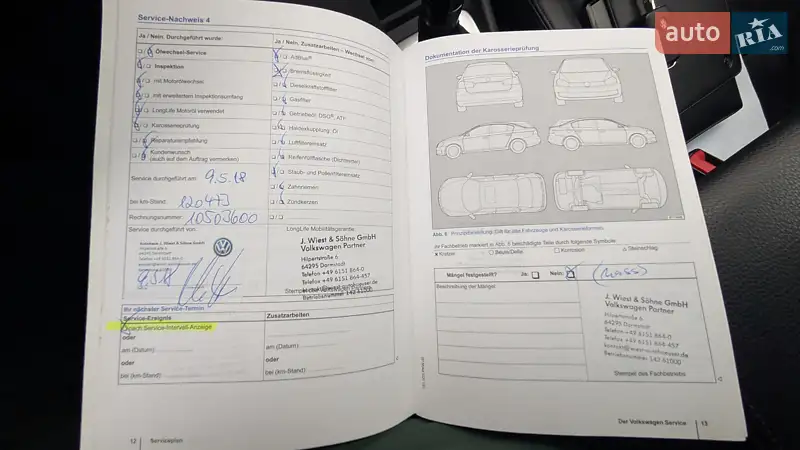 auto RIA.com
Service-Nachweis 4
Ja / Nein. Durchgeführt wurde:
Ölwechsel-Service
Inspektion
mit Motorölwechsel
mit erweitertem Inspektionsumfang
LongLife Motoröl verwendet
Karosserieprüfung
Reparaturempfehlung
Kundenwunsch
(auch auf dem Auftrag vermerken)
Service durchgeführt am: 9.5.18
bei km-Stand: 120473
Rechnungsnummer: 10503600
Service durchgeführt von:
9.5.18
Ja / Nein. Zusatzarbeiten – Wechsel von:
AdBlue®
Bremsflüssigkeit
Dieselkraftstofffilter
Gasfilter
Getriebeöl: DSG®, ATF
Haldexkupplung: Öl
Luftfiltereinsatz
Reifenfüllflasche (Dichtmittel)
Staub- und Pollenfiltereinsatz
Zahnriemen
Zündkerzen
LongLife Mobilitätsgarantie
J. Wiest & Söhne GmbH
Volkswagen Partner
Hilpertstraße 6
64295 Darmstadt
Telefon +49 6151 864-0
Telefax +49 6151 864-457
Betriebsnummer 142 61000
Ihr nächster Service-Termin
Service-Ereignis
Zusatzarbeiten
nach Service-Intervall-Anzeige
oder
am (Datum)
am (Datum)
oder
oder
bei (km-Stand)
bei (km-Stand)
12 Serviceplan
Dokumentation der Karosserieprüfung
Abb. 6 Prinzipdarstellung: Gilt für alle Fahrzeuge und Karosserieformen.
Ihr Fachbetrieb markiert in Abb. 6 beschädigte Teile durch folgende Symbole:
x Kratzer
○ Beule/Delle
□ Korrosion
△ Steinschlag
Mängel festgestellt?
Ja:
Nein:
(NASS)
Beschreibung der Mängel:
J. Wiest & Söhne GmbH
Volkswagen Partner
Hilpertstraße 6
64295 Darmstadt
Telefon +49 6151 864-0
Telefax +49 6151 864-457
kontakt@wiest-autohaeuser.de
Betriebsnummer 142 61000
Stempel des Fachbetriebs
Der Volkswagen Service 13